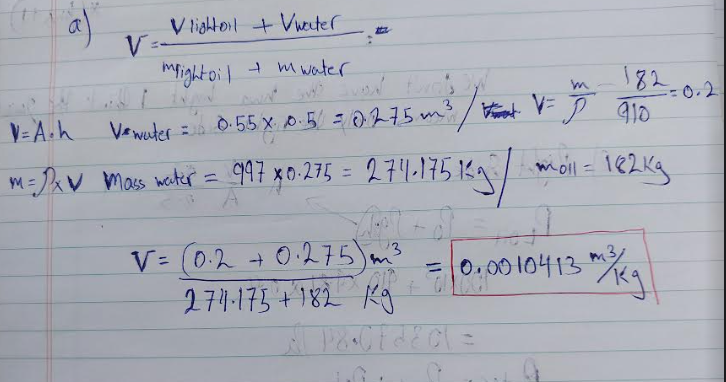 a) V = Vlightoil + Vwater / mlightoil + mwater =
V=A.h Vwater = 0.55 x 0.5 = 0.275 m³ / V= m/ρ = 182/910 = 0.2
m=ρxV Mass water = 997 x 0.275 = 274.175 Kg / moil = 182Kg
V = (0.2 + 0.275) m³ / 274.175 + 182 Kg = 0.0010413 m³/Kg